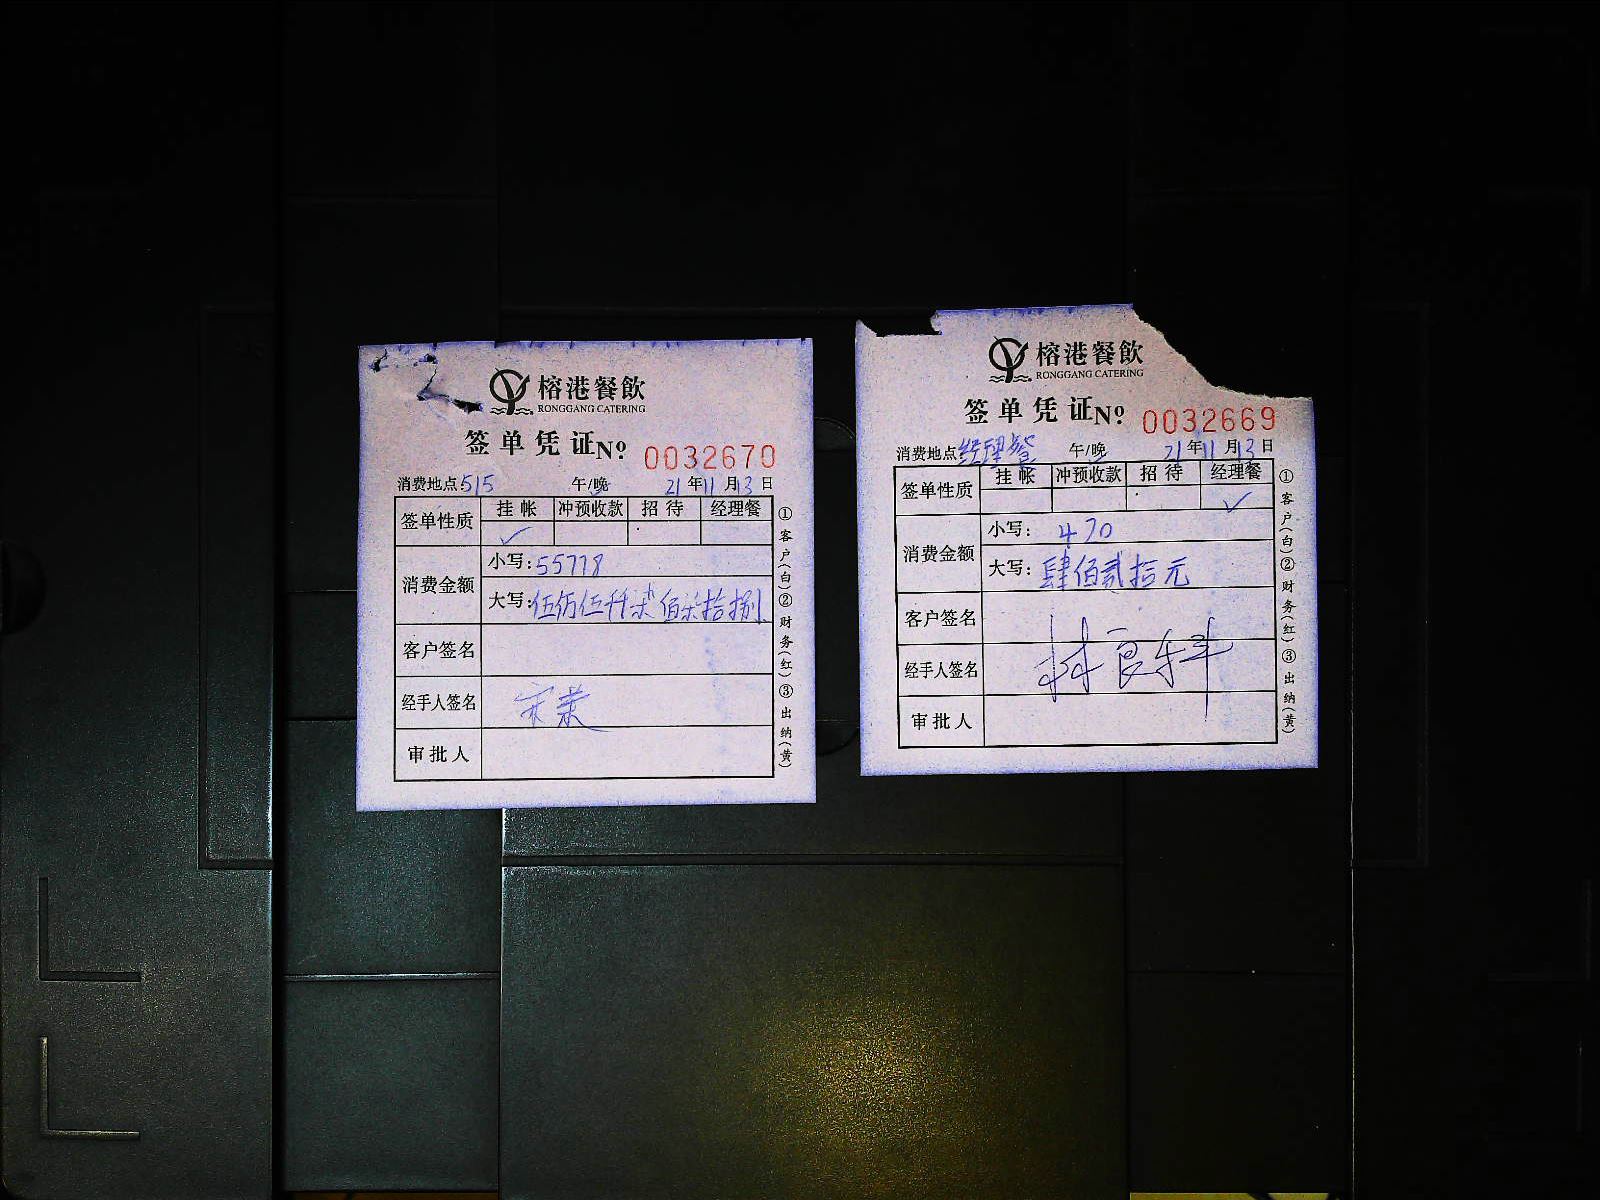 榕港餐飲
RONGGANG CATERING
签单凭证№ 0032670
消费地点515 午/晚 21年11月13日
签单性质 挂帐 冲预收款 招待 经理餐
✓
消费金额 小写:55778
大写:伍佰伍仟柒佰柒拾捌
客户签名
经手人签名
审批人
①客户(白)②财务(红)③出纳(黄)
榕港餐飲
RONGGANG CATERING
签单凭证№ 0032669
消费地点:经理餐 午/晚 21年11月13日
签单性质 挂帐 冲预收款 招待 经理餐
✓
消费金额 小写: 420
大写:肆佰贰拾元
客户签名
经手人签名
审批人
①客户(白)②财务(红)③出纳(黄)